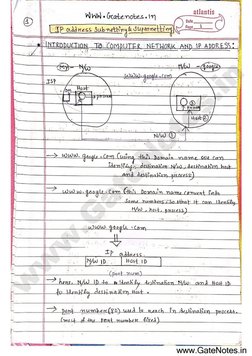 www.Gatenotes.in
①
atlantis
Date
Page
IP address Subnetting & Supernetting
INTRODUCTION TO COMPUTER NETWORK AND IP ADDRESS:
N/W
N/W - google
www.google.com
ISP
Host
Host
N/W ①
→ www.google.com (using this Domain name we can
identify, destination N/W, destination host
and destination process)
→ www.google.com (this Domain name convert into
some numbers. So that it can identify
N/W, host, process)
www.google.com
IP address
N/W ID Host ID
(port num)
→ here, N/W ID to identify destination N/W and Host ID
to identify destination host.
→ port number used to reach in destination process.
(most of the port number fixed)
www.GateNotes.in
www.GateNotes.in